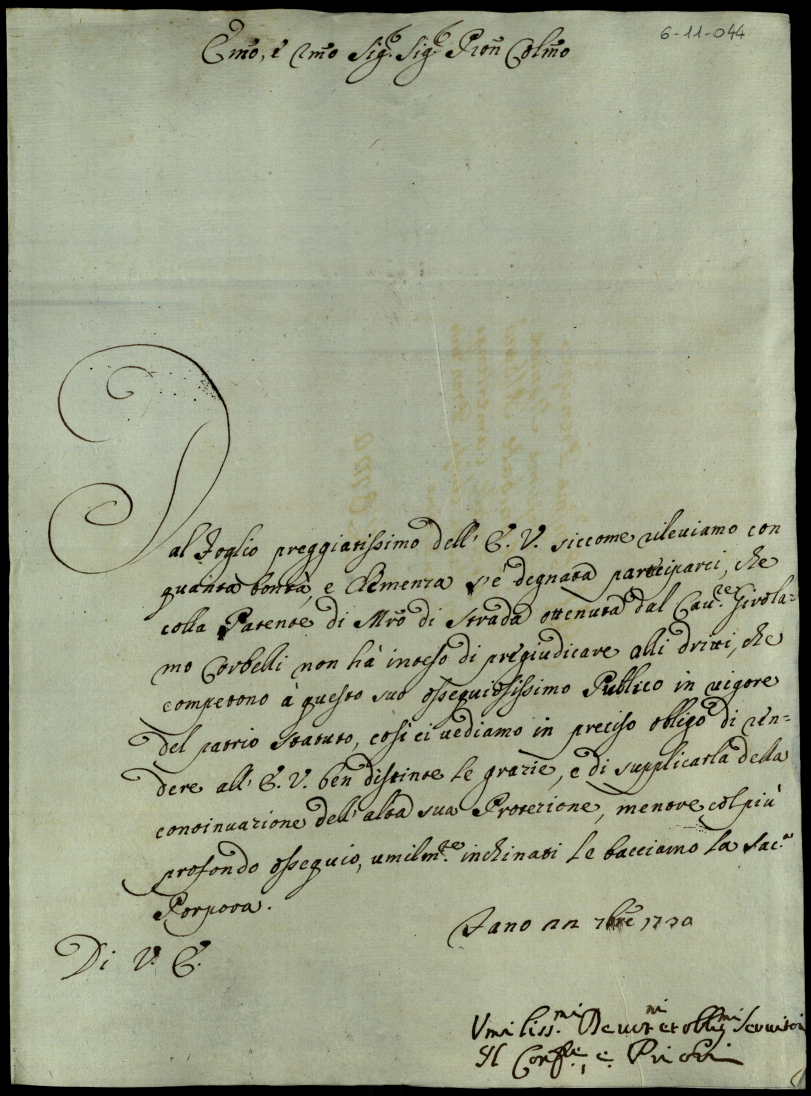 6-11-044
Emo, e Rmo Sig.e Sig.e Pron Colmo
Dal Foglio preggiatissimo dell' E. V. siccome rileviamo con
quanta bontà, e Clemenza s'è degnata parteciparci, che
colla Patente di Mrõ di Strada ottenuta dal Cav.re Girola=
mo Corbelli non hà inteso di pregiudicare alli dritti, che
competono à questo suo ossequiosissimo Publico in vigore
del patrio Statuto, così ci vediamo in preciso obligo di ren=
dere all' E. V. ben distinte le grazie, e di supplicarla della
continuazione dell' alta sua Protezione, mentre col più
profondo ossequio, umilm.te inchinati le bacciamo la Sac.a
Porpora.
Fano 22 7bre
Di V. E.
Umiliss.mi Devot.mi et oblig.mi Servitori
Il Conf.re, e Priori